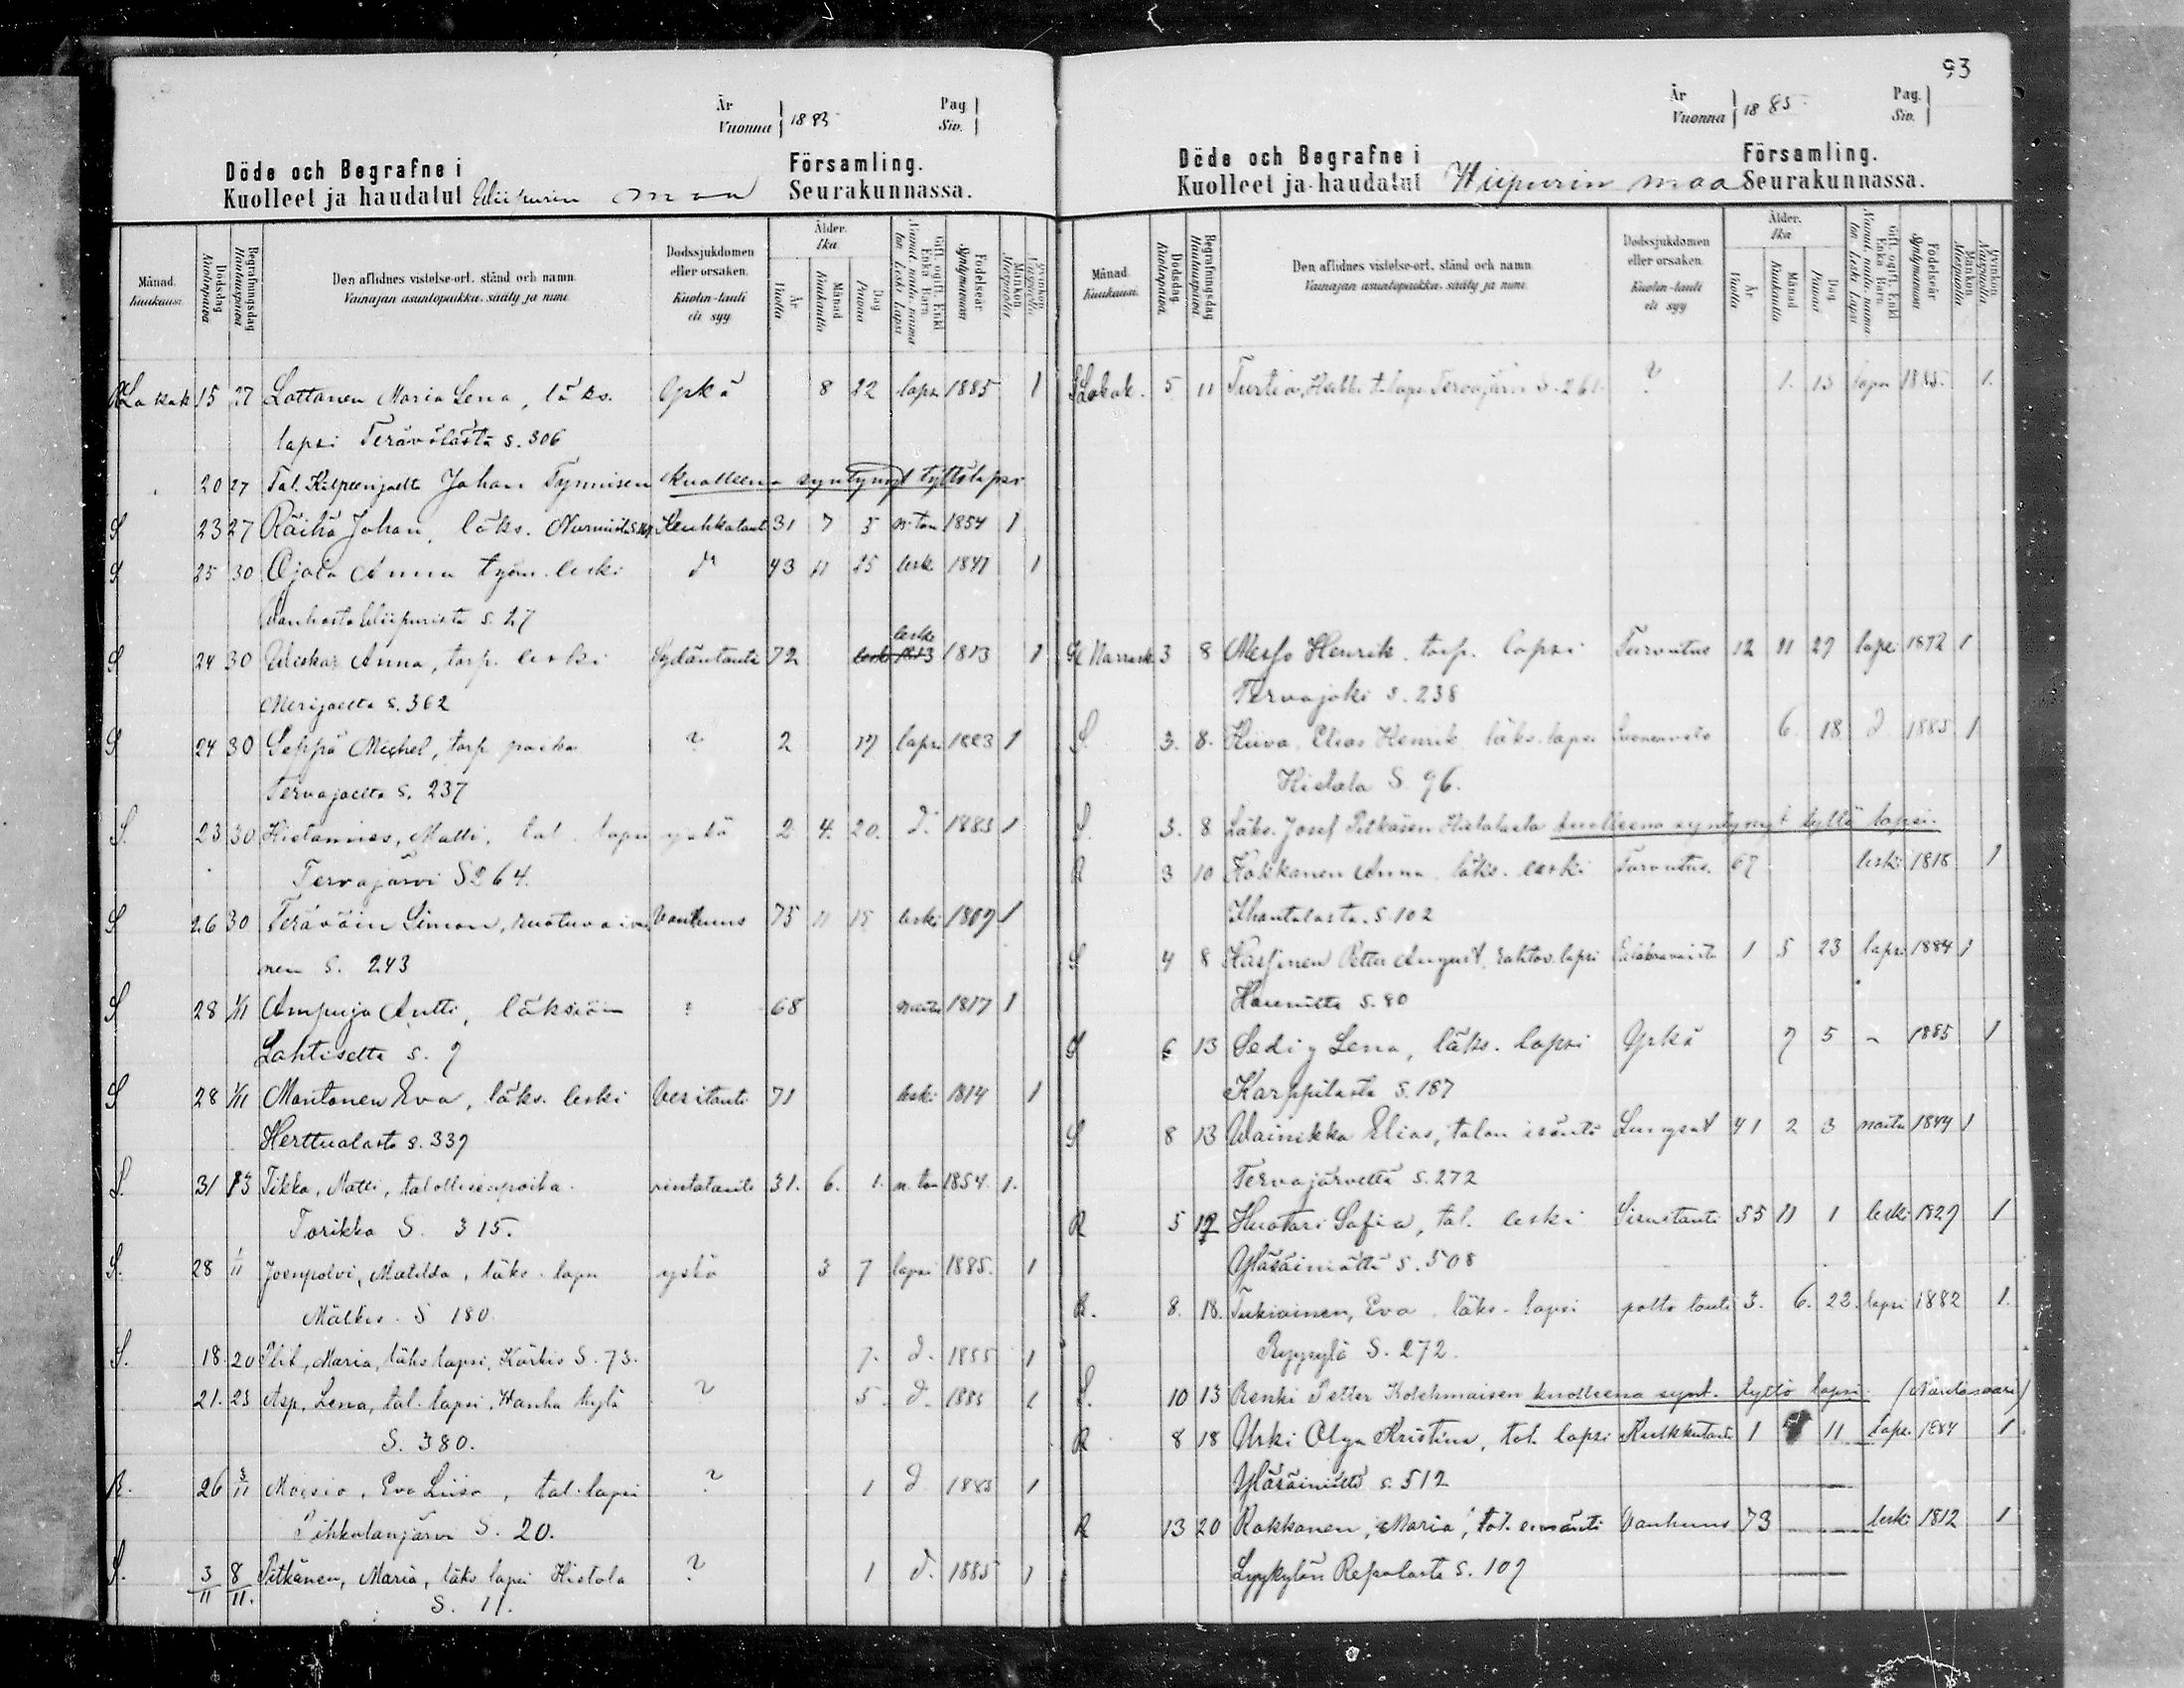 År
Vuonna 1885
Pag
Siv.
Döde och Begrafne i Församling.
Kuolleet ja haudatut Wiipurin maa Seurakunnassa.
Månad. Kuukausi.
Dödsdag Kuolinpäivä
Begrafningsdag Hautauspäivä
Den aflidnes vistelse-ort, stånd och namn.
Vainajan asuntopaikka, sääty ja nimi.
Dödssjukdomen eller orsaken.
Kuolin-tauti eli syy
Ålder. Ikä
År Vuotta
Månad Kuukautta
Dag Päivää
Gift, ogift, Enkl. Enka, Barn.
Födelseår Syntymävuosi
Mankön Miespuolia
Qvinkön Vaimpuolia
R Lokak 15 27 Lattanen Maria Lena, läks. Yskä 8 22 lapsi 1885 1
lapsi Terävälästä s. 306
20 27 Tal. Kilpeenjoelta Johan Tynnisen kuolleena syntynyt tyttölapsi
S 23 27 Räihä Johan, läks. Keuhkotaut 31 7 5 n:ton 1854 1
S 25 30 Ojala Anna työm. leski d:o 43 11 25 leski 1841 1
Wanhasta Wiipurista s. 27
S 24 30 Anna, torp. leski Sydäntauti 72 leski 1813 1
Merijoelta s. 362
S 24 30 Seppä Michel, torp. poika ? 2 17 lapsi 1883 1
Tervajoelta s. 237
S. 23 30 Hietamies, Matti, tal. lapsi yskä 2 4. 20. d. 1883 1
Tervajärvi S 264.
S 26 30 Teräväin Simon, ruotuvai- Vanhuus 75 11 15 leski 1809 1
nen S. 243
S 28 1/11 Ampuja Antti, läksiäin ? 68 naitu 1817 1
Lahtiselta s. 7
S 28 1/11 Mantonen Eva, läks. leski Vesitauti 71 leski 1814 1
Herttualasta s. 337
S. 31 Tikka, Matti, talollisenpoika. rintatauti 31. 6. 1. n. ton 1854. 1.
Torikka S. 315.
S. 28 1/11 Joenpolvi, Matilda, läks. lapsi yskä 3 7 lapsi 1885. 1
Mälkis. S 180.
S. 18. 20 Maria, läks lapsi, Kärkis S. 73. 7. d. 1885 1
21. 23 Asp, Lena, tal. lapsi, Wanha kylä ? 5. d. 1885 1
S. 380.
R. 26 3/11 Moisio, Eva Liisa, tal. lapsi ? 1 d 1885 1
Pihkalanjärvi S. 20.
S. 3/11 8/11. Pitkänen, Maria, läks lapsi Hietala ? 1 d. 1885 1
S. 11.
93
År
Vuonna 1885
Pag.
Siv.
Döde och Begrafne i Församling.
Kuolleet ja haudatut Wiipurin maa Seurakunnassa.
Månad. Kuukausi.
Dödsdag. Kuolinpäivä.
Begrafningsdag Hautauspäivä
Den aflidnes vistelse-ort, stånd och namn.
Vainajan asuntopaikka, sääty ja nimi.
Dödssjukdomen eller orsaken.
Kuolin-tauti eli syy
Ålder. Ikä
År Vuotta
Månad Kuukautta
Dag Päivää
Gift, ogift, Enkl. Enka, Barn.
Födelseår Syntymävuosi
Mankön Miespuolia
Qvinkön Vaimpuolia
S Lokak. 5 11 Turtia, t. laps. Tervajärvi S. 261. ? 1. 13 lapsi 1885. 1.
S Marrask 3 8 Messo Henrik. torp. lapsi Turvotus 12 11 27 lapsi 1872 1
Tervajoki s. 238
S. 3. 8. Kiiva, Elias Henrik läks. lapsi 6. 18 d 1885 1
Hietala S. 96.
S. 3. 8 Läks. Josef Pitkäsen Hietalasta kuolleena syntynyt tyttö lapsi.
R 3 10 Kokkanen Anna läks. leski Turvotus. 67 leski 1818 1
Ihantalasta. S. 102
S 4 8 Kassinen Petter August, lapsi 1 5 23 lapsi 1884 1
s. 80
S 6 13 Sedig Lena, läks. lapsi Yskä 7 5 - 1885 1
Karppilasta S. 187
S 8 13 Wainikka Elias, talon isäntä 41 2 3 naitu 1844 1
Tervajärveltä s. 272
R 5 17 Huotari Sofia, tal. leski Sisustauti 55 11 1 leski 1829 1
Yläsäiniältä s. 508
R. 8. 18. Tukiainen, Eva läks. lapsi poltto tauti 3. 6. 22. lapsi 1882 1.
S. 272.
S. 10 13 Renki Petter Kolehmaisen kuolleena synt. tyttö lapsi. (Nuutansaari)
R 8 18 Urki Olga Kristina, tal. lapsi Kurkkutauti 1 11 lapsi 1884 1.
Yläsäiniältä s. 512
R 13 20 Rakkanen, Maria, tal. emäntä Vanhuus 73 leski 1812 1
Lyykylän Repolasta s. 107